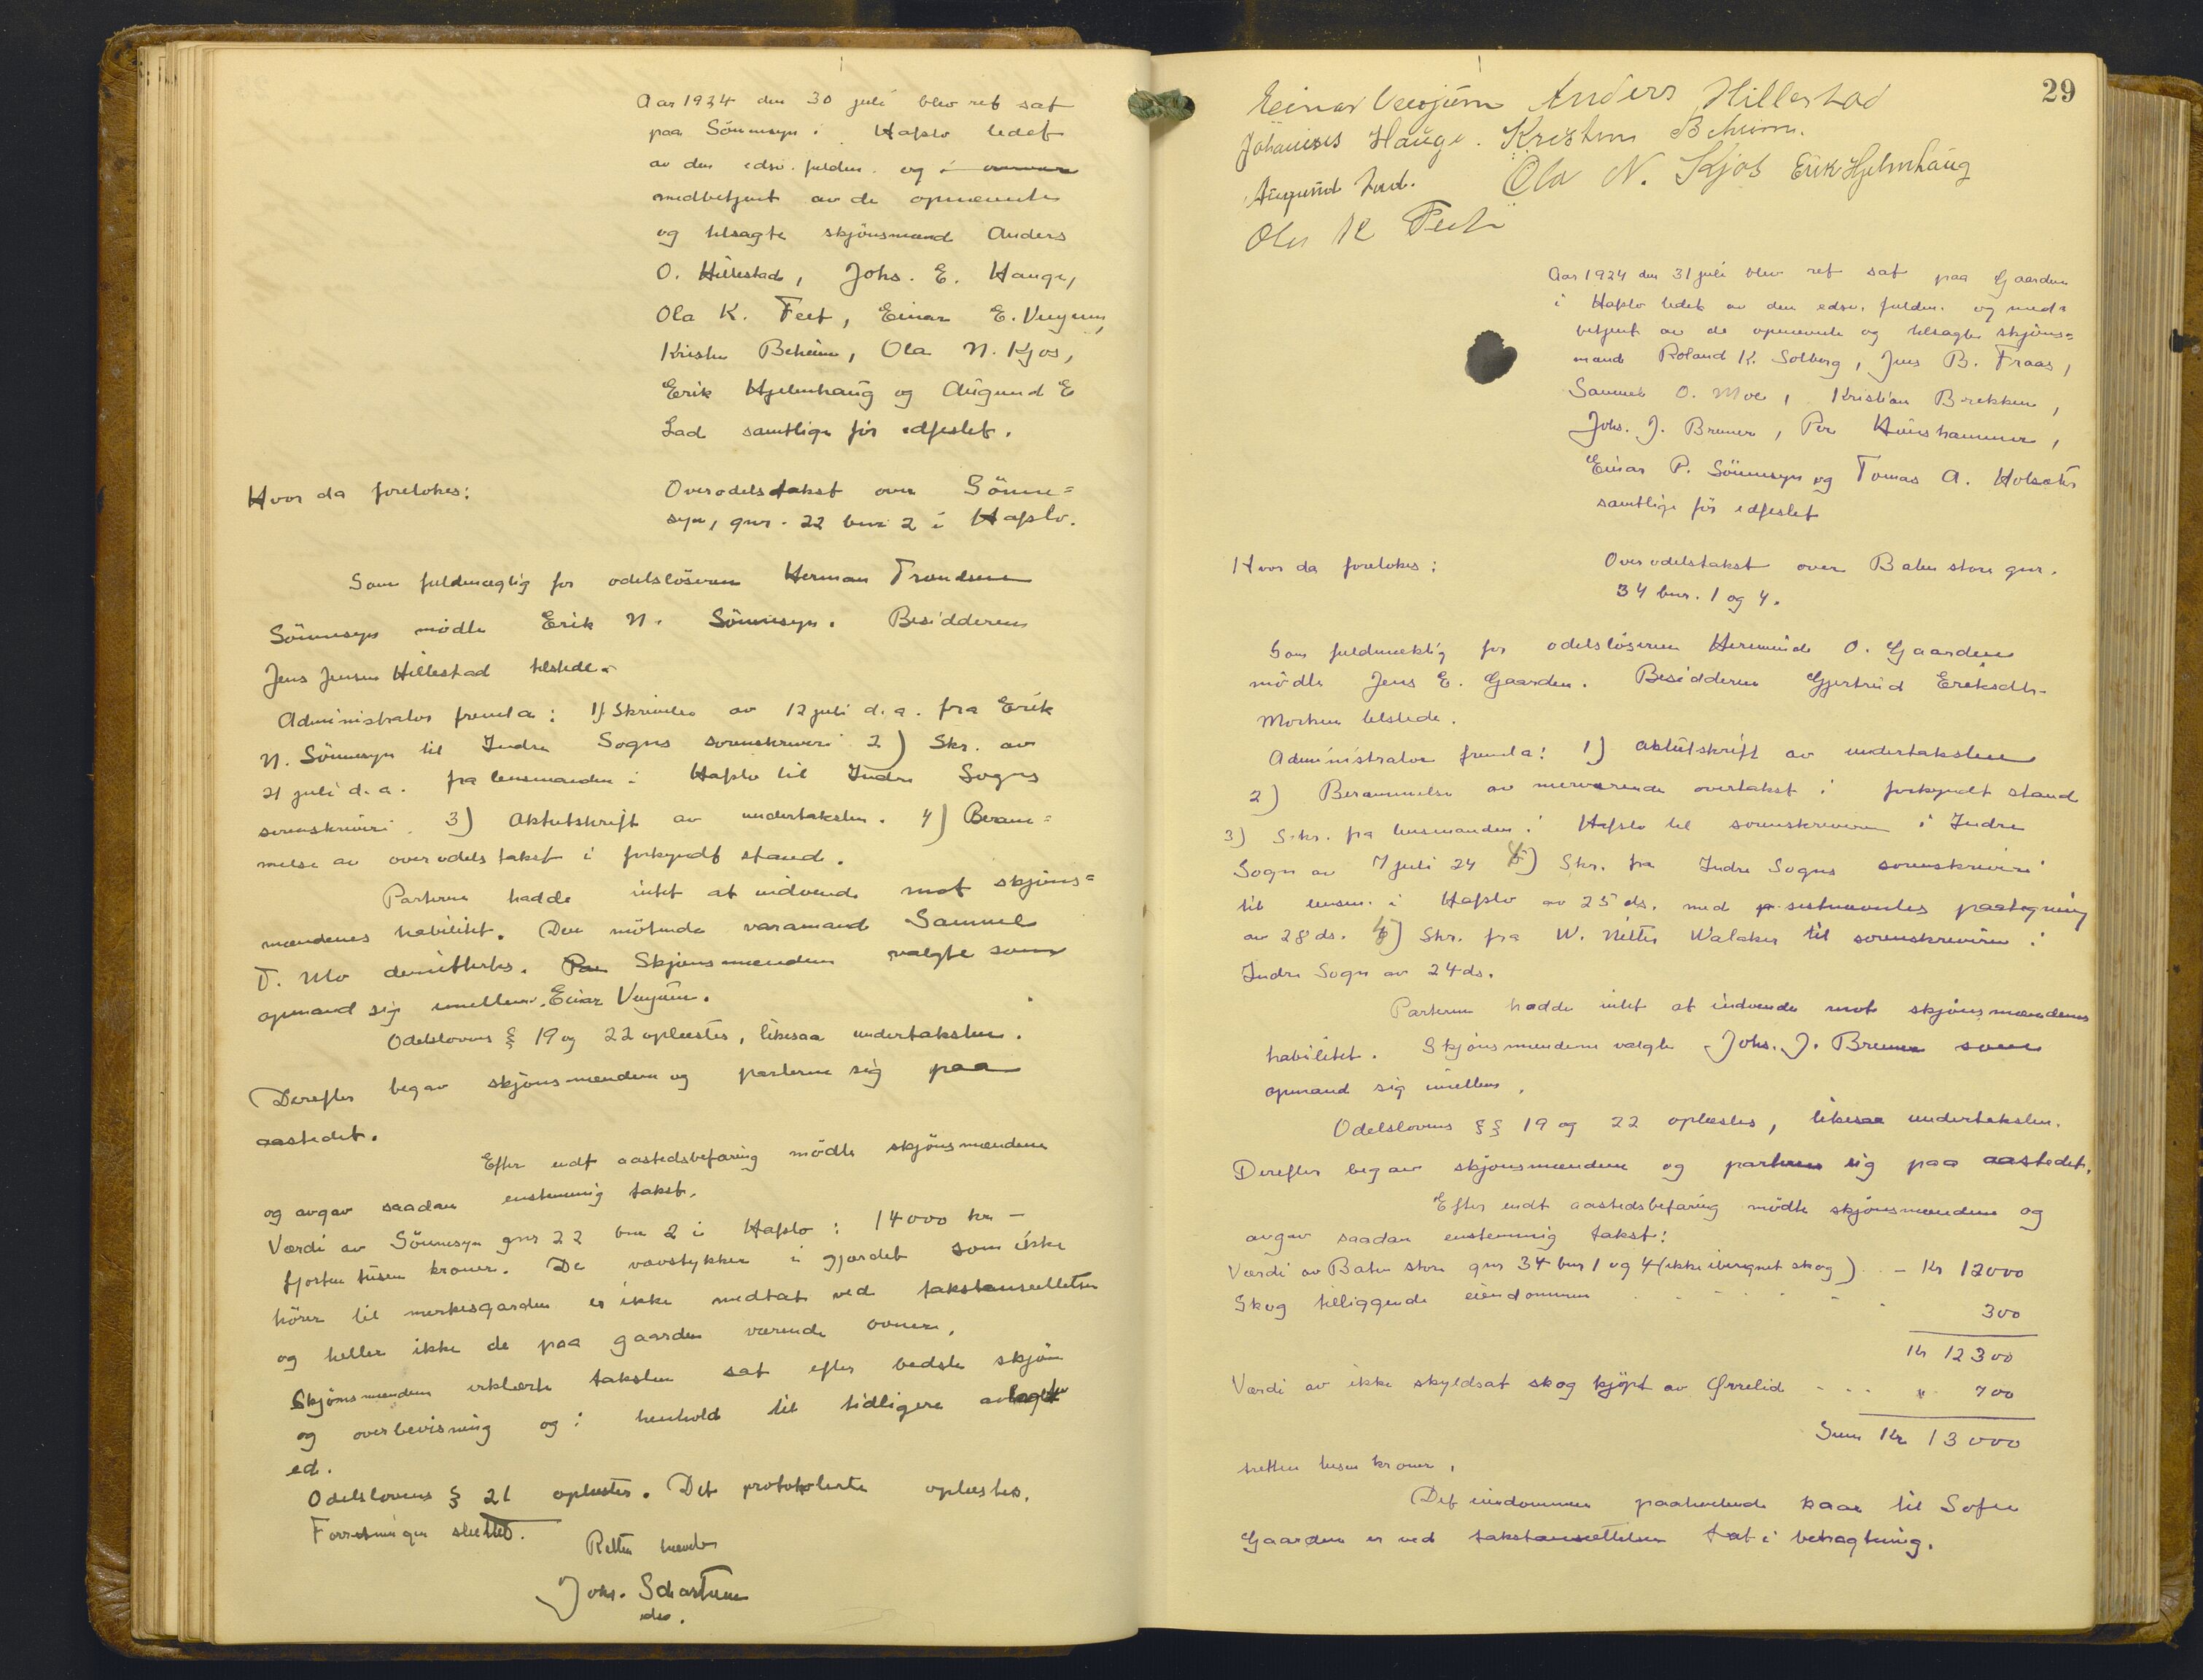 Aar 1924 den 30 juli blev ret sat
paa Sönnesyn i Hafslo ledet
av den edsv. fuldm. og i
medbetjent av de opnævnte
og tilsagte skjönsmænd Anders
O. Hillestad, Johs. E. Hauge,
Ola K. Feet, Einar E. Venjum,
Kristen Beheim, Ola N. Kjos,
Erik Hjelmhaug og Augund E
Lad samtlige för edfestet.
Hvor da foretokes:
Overodelstakst over Sönne=
syn, gnr. 22 bnr 2 i Hafslo.
Som fuldmægtig for odelslöseren Herman Trondsen
Sönnesyn mödte Erik N. Sönnesyn. Besidderen
Jens Jensen Hillestad tilstede.
Administrator fremla: 1) Skrivelse av 12 juli d.a. fra Erik
N. Sönnesyn til Indre Sogns sorenskriveri 2) Skr. av
21 juli d.a. fra lensmanden i Hafslo til Indre Sogns
sorenskriveri. 3) Aktutskrift av undertaksten. 4) Beram=
melse av overodelstakst i forkyndt stand.
Parterne hadde intet at indvende mot skjöns=
mændenes habilitet. Den mötende varamand Samuel
T. Mo demittertes. Skjönsmændene valgte som
opmand sig imellem. Einar Venjum.
Odelslovens § 19 og 22 oplæstes, likesaa undertaksten.
Derefter begav skjönsmændene og parterne sig paa
aastedet.
Efter endt aastedsbefaring mödte skjönsmændene
og avgav saadan enstemmig takst.
Værdi av Sönnesyn gnr 22 bnr 2 i Hafslo: 14000 kr –
fjorten tusen kroner. De vævstykker i gjærdet som ikke
hörer til merkesgarden er ikke medtat ved takstansættelsen
og heller ikke de paa gaarden værende ovner.
Skjönsmændene erklærte taksten sat efter bedste skjön
og overbevisning og i henhold til tidligere avlagte
ed.
Odelslovens § 21 oplæstes. Det protokolerte oplæstes.
Forretningen sluttet.
Retten hævet
Johs. Schartum
edsv.
29
Einar Venjum Anders Hillestad
Johannes Hauge. Kristen Beheim.
Augund Lad. Ola N. Kjos Erik Hjelmhaug
Ola K Feet
Aar 1924 den 31 juli blev ret sat paa Gaarden
i Hafslo ledet av den edsv. fuldm. og med=
betjent av de opnævnte og tilsagte skjöns=
mænd Roland K. Solberg, Jens B. Fraas,
Samuel O. Moe, Kristian Brekken,
Johs. J. Bremer, Per Kinshammer,
Einar P. Sönnesyn og Tomas A. Holsæter
samtlige för edfestet
Hvor da foretokes:
Overodelstakst over Balen store gnr.
34 bnr. 1 og 4.
Som fuldmæktig for odelslöseren Hereminde O. Gaarden
mödte Jens E. Gaarden. Besidderen Gjertrud Eriksdtr.
Morken tilstede.
Administrator fremla: 1) aktutskrift av undertaksten
2) Berammelse av nærværende overtakst i forkyndt stand
3) Skr. fra lensmanden i Hafslo til sorenskriveren i Indre
Sogn av 7 juli 24 4) Skr. fra Indre Sogns sorenskriveri
til lensm. i Hafslo av 25 ds. med sistnævntes paategning
av 28 ds. 5) Skr. fra W. Nitter Walaker til sorenskriveren i
Indre Sogn av 24 ds.
Parterne hadde intet at indvende mot skjönsmændenes
habilitet. Skjönsmændene valgte Johs. J. Bremer som
opmand sig imellem.
Odelslovens §§ 19 og 22 oplæstes, likesaa undertaksten.
Derefter begav skjönsmændene og parterne sig paa aastedet.
Efter endt aastedsbefaring mödte skjönsmændene og
avgav saadan enstemmig takst:
Værdi av Balen store gnr 34 bnr 1 og 4 (ikke iberegnet skog) . . – Kr 12000
Skog tilliggende eiendommen . . . . . . . 300
Kr 12300
Værdi av ikke skyldsat skog kjöpt av Ørrelid . . . " 700
Sum Kr 13000
tretten tusen kroner.
Det eiendommen paahvilende kaar til Sofie
Gaarden er ved takstansættelsen tat i betragtning.